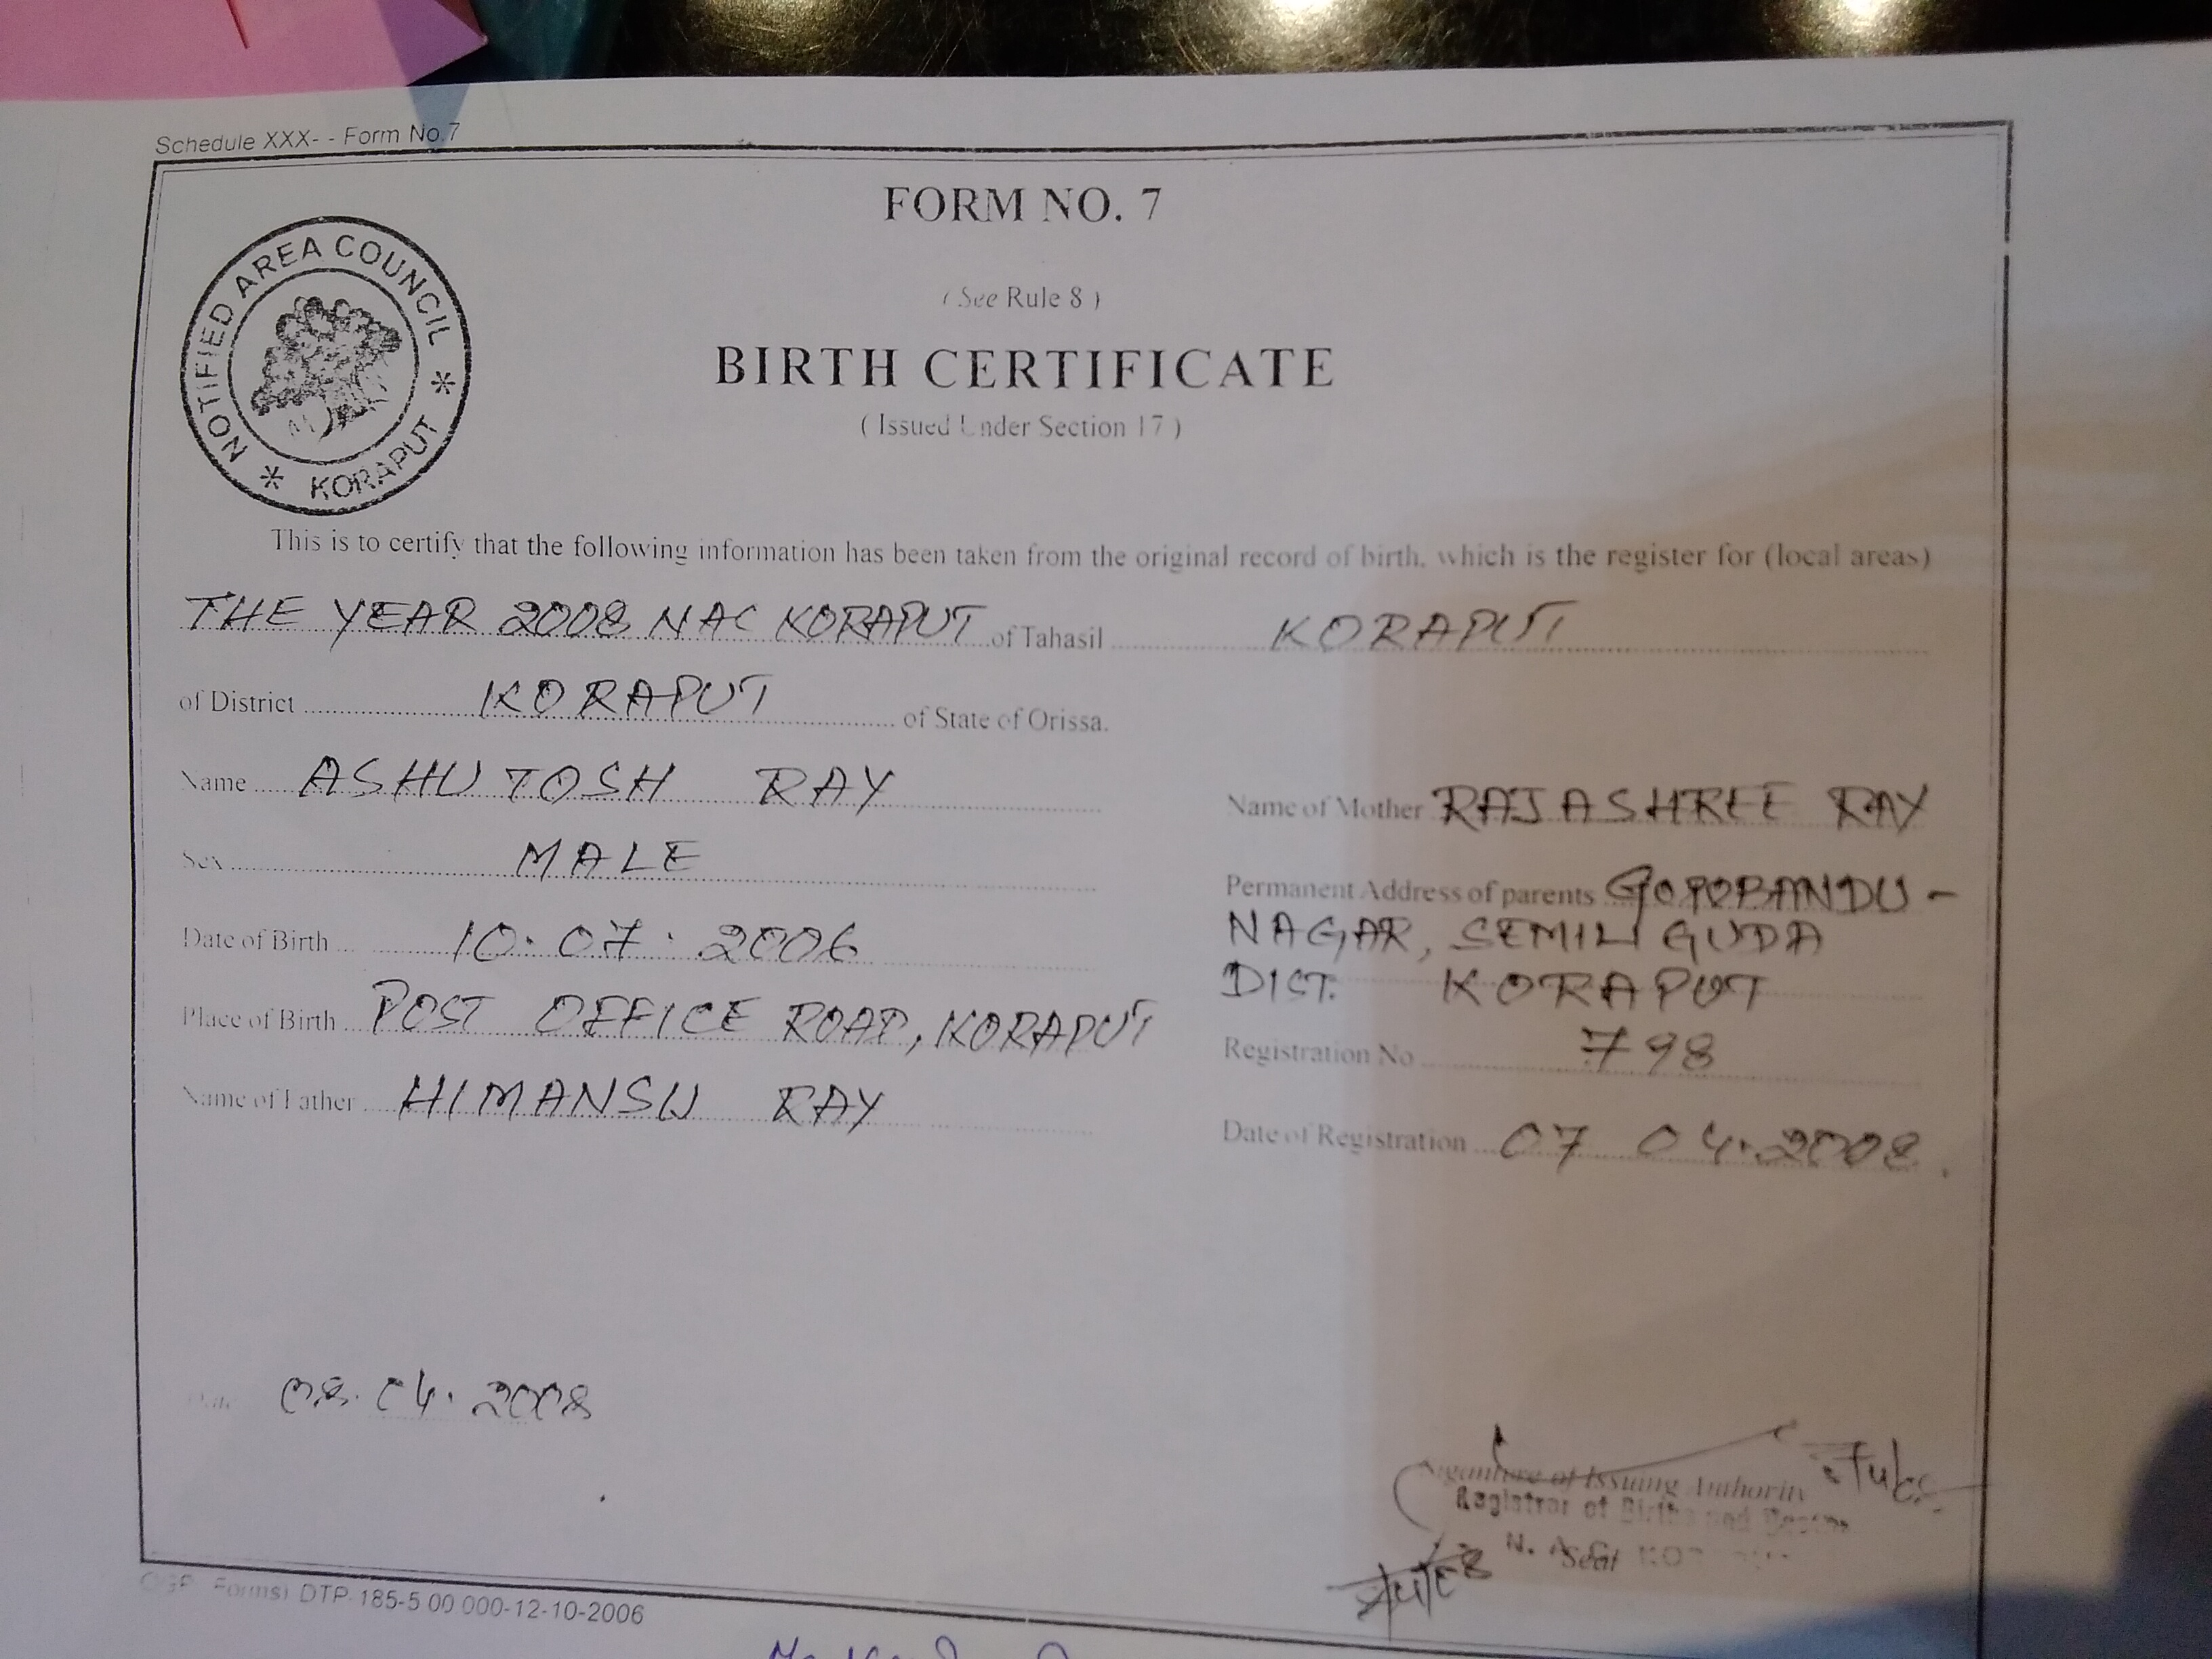 Schedule XXX- - Form No.7
FORM NO. 7
NOTIFIED AREA COUNCIL
* KORAPUT *
( See Rule 8 )
BIRTH CERTIFICATE
( Issued Under Section 17 )
This is to certify that the following information has been taken from the original record of birth, which is the register for (local areas)
THE YEAR 2008 NAC KORAPUT of Tahasil KORAPUT
of District KORAPUT of State of Orissa.
Name ASHUTOSH RAY
Sex MALE
Date of Birth 10.07.2006
Place of Birth POST OFFICE ROAD, KORAPUT
Name of Father HIMANSU RAY
Name of Mother RAJASHREE RAY
Permanent Address of parents GOPOBANDU-
NAGAR, SEMILIGUDA
DIST. KORAPUT
Registration No 798
Date of Registration 07 04.2008.
Date 08.04.2008
Signature of Issuing Authority
Registrar of Births and
N. A. C.
Seal
Forms) DTP-185-5 00 000-12-10-2006